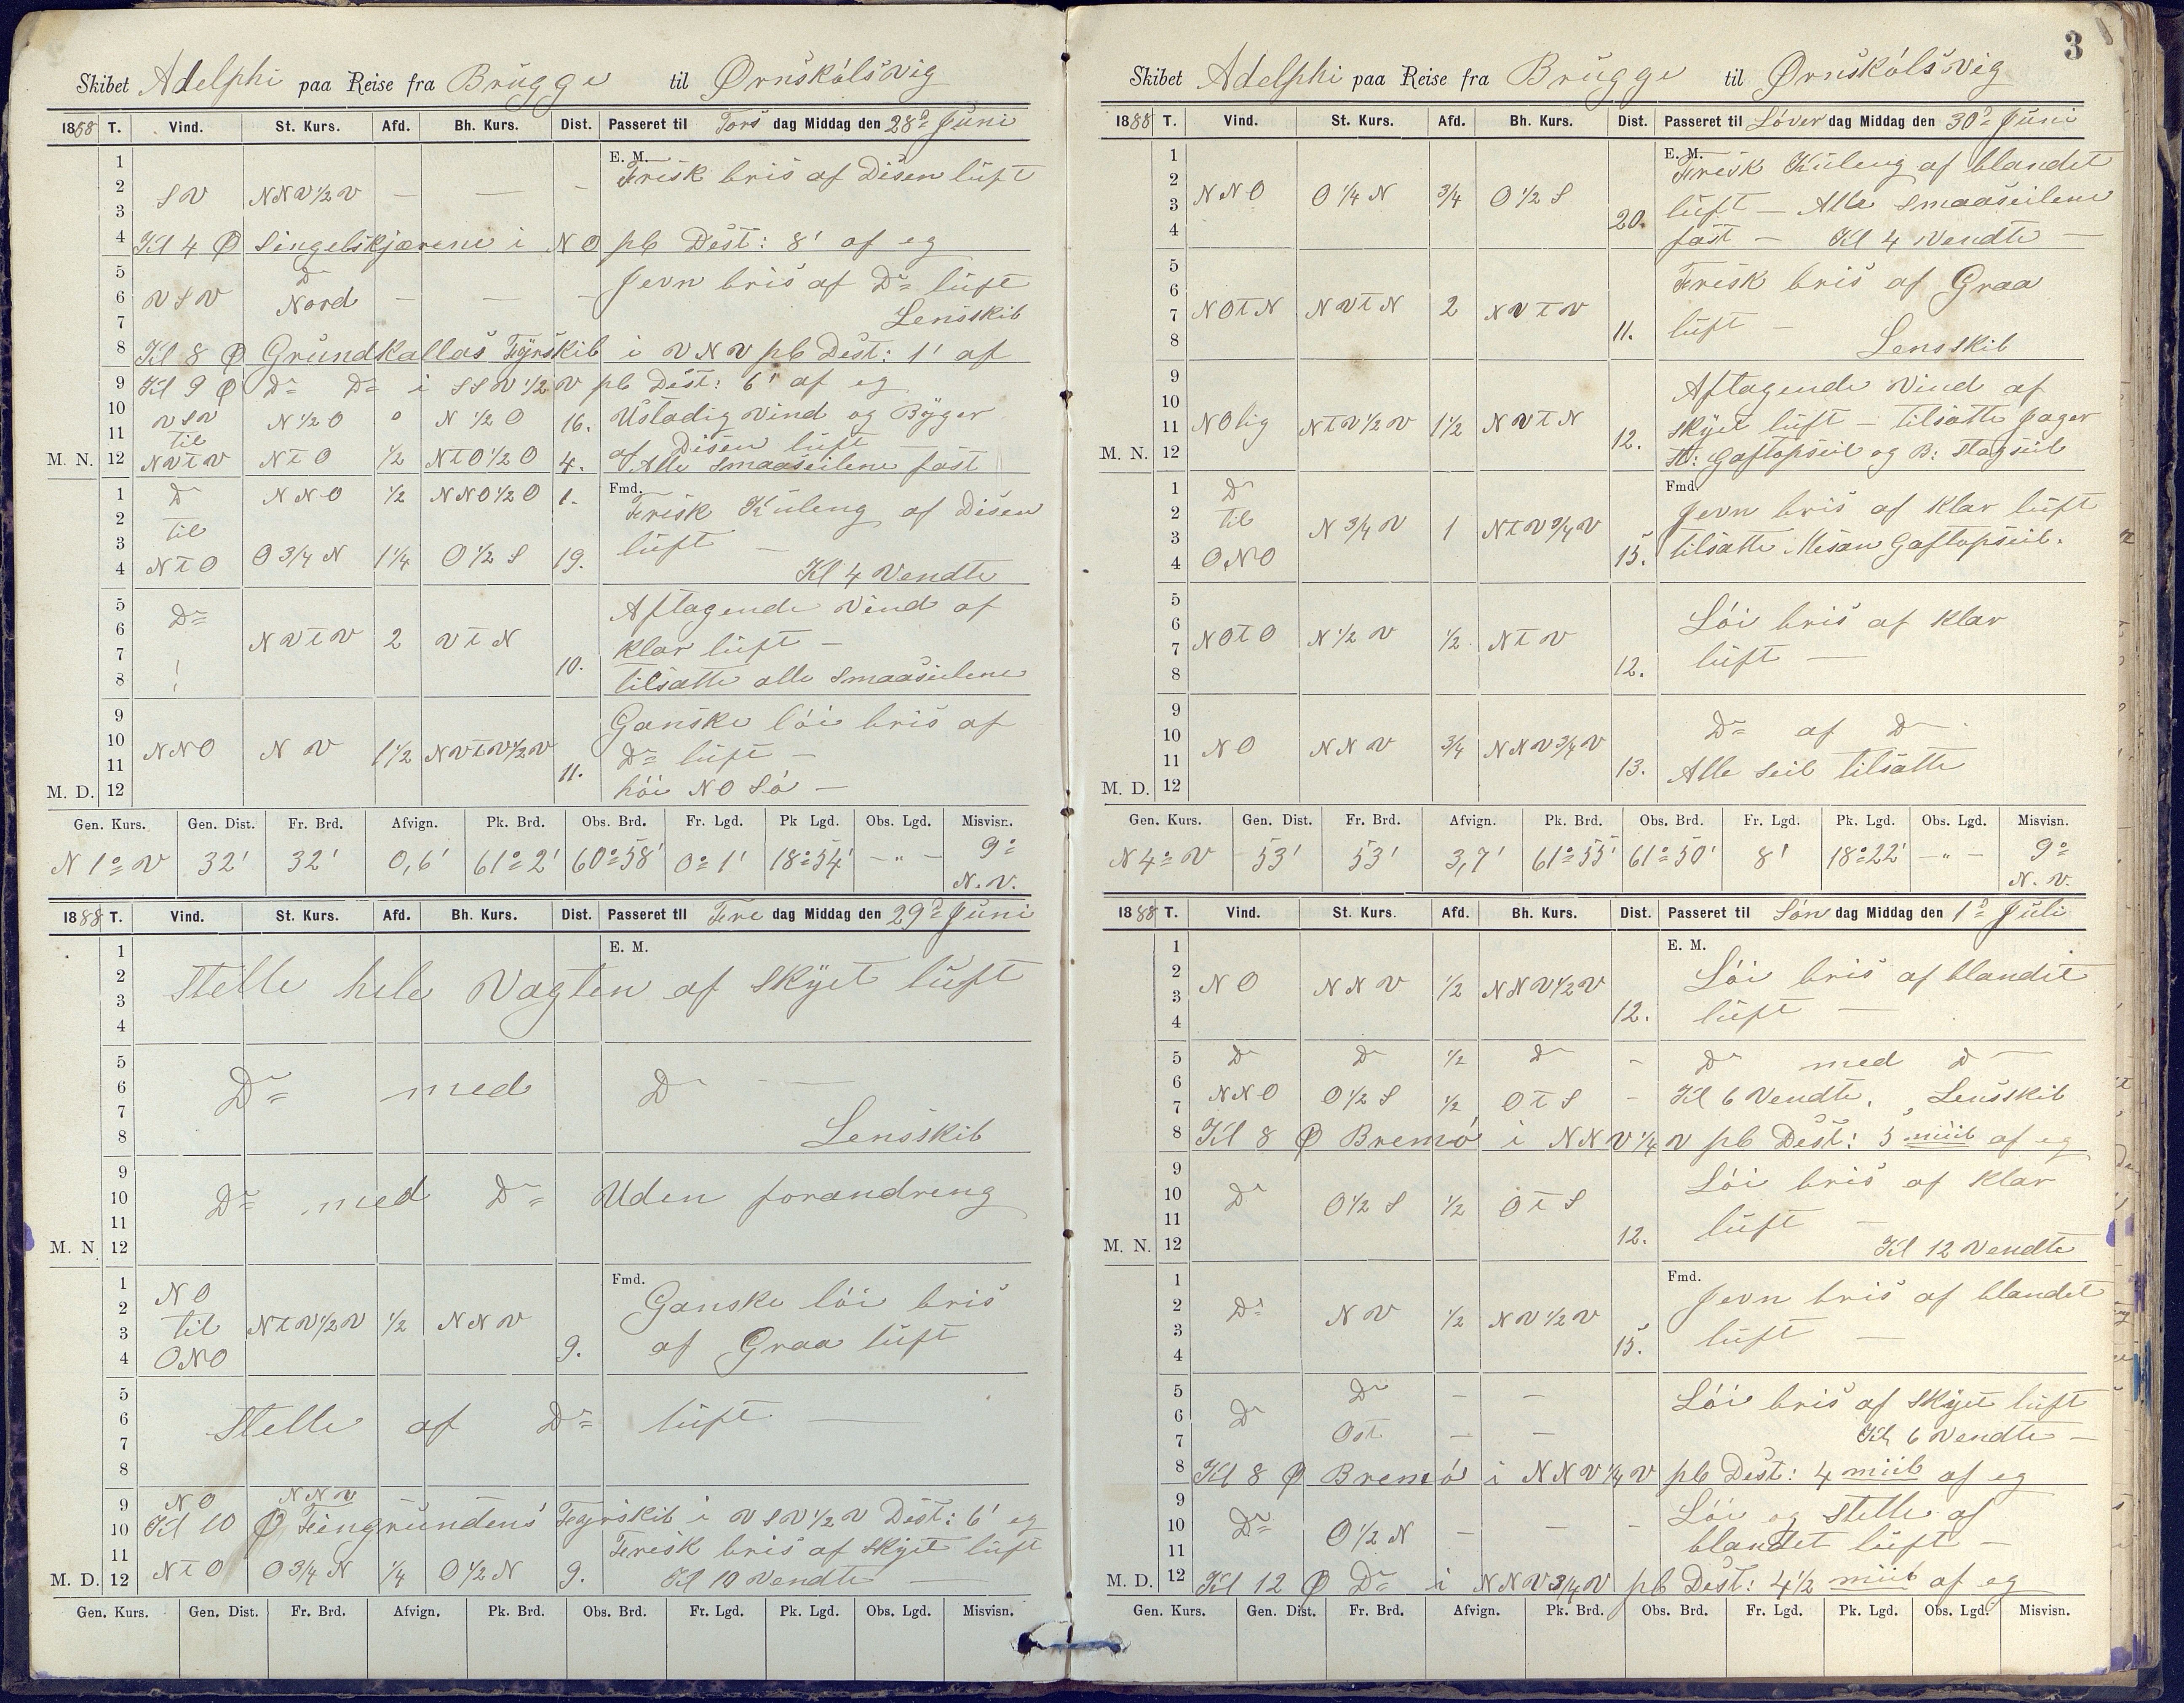 Skibet Adelphi paa Reise fra Brügge til Ørnskólsvig
1888 T. Vind. St. Kurs. Afd. Bh. Kurs. Dist. Passeret til Tors dag Middag den 28de Juni
E. M.
1
2
3
4
SV NNV½V — — - Frisk bris af Disen lüft
Kl 4 Ø Singelskjærene i NO pb Dest: 8' af eg
5
6
7
8
Do
VSV Nord — — - Jevn bris af Do lüft
Lensskib
Kl 8 Ø Gründkallas Fyrskib i VNV pb Dest: 1' af
9 Kl 9 Ø Do Do i SSV½V pb Dest: 6' af eg
10
11
VSV N½O o N½O 16. Ustadig Vind og Byger
til af Disen lüft
M. N. 12 NVTV NTO ½ NTO½O 4. Alle Smaaseilene fast
Fmd.
1
2
3
4
Do NNO ½ NNO½O 1. Frisk Küleng af Disen
til lüft —
NTO O¾N 1¼ O½S 19. Kl 4 Vendte
5
6
7
8
Do Aftagende Vind af
NVTV 2 VTN klar lüft —
10. tilsatte alle Smaaseilene
9
10
11
M. D. 12
Ganske löi bris af
NNO NV 1½ NVTV½V 11. Do lüft —
höi NO Sö —
Gen. Kurs. Gen. Dist. Fr. Brd. Afvign. Pk. Brd. Obs. Brd. Fr. Lgd. Pk Lgd. Obs. Lgd. Misvisn.
N 1o V 32' 32' 0,6' 61o 2' 60o 58' 0o 1' 18o 54' -"- 9o
N. V.
1888 T. Vind. St. Kurs. Afd. Bh. Kurs. Dist. Passeret til Fre dag Middag den 29de Juni
E. M.
1
2
3
4
Stelle hele Vagten af Skyet lüft
5
6
7
8
Do med Do —
Lensskib
9
10
11
M. N. 12
Do med Do Uden forandreng
Fmd.
1
2
3
4
NO Ganske löi bris
til NTV½V ½ NNV
ONO 9. af Graa lüft
5
6
7
8
Stelle af Do lüft —
9 NO NNV
10 Kl 10 Ø Fingründens Fyrskib i VSV½V Dest: 6' eg
11 Frisk bris af Skyet lüft
M. D. 12 NTO O¾N ¼ O½N 9. Kl 10 Vendte —
Gen. Kurs. Gen. Dist. Fr. Brd. Afvign. Pk. Brd. Obs. Brd. Fr. Lgd. Pk. Lgd. Obs. Lgd. Misvisn.
3
Skibet Adelphi paa Reise fra Brügge til Ørnskólsvig
1888 T. Vind. St. Kurs. Afd. Bh. Kurs. Dist. Passeret til Löver dag Middag den 30de Juni
E. M.
1
2
3
4
Frisk Küleng af blandet
NNO O¼N ¾ O½S 20. lüft — Alle Smaaseilene
fast — Kl 4 Vendte —
5
6
7
8
Frisk bris af Graa
NOTN NVTN 2 NVTV 11. lüft —
Lensskib
9
10
11
M. N. 12
Aftagende Vind af
NOlig NTV½V 1½ NVTN 12. Skyet lüft — tilsatte Jager
St: Gaftopseil og B: Stagseil
Fmd.
1
2
3
4
Do Jevn bris af klar lüft
til N¾V 1 NTV¾V
ONO 15. tilsatte Mesan Gaftopseil.
5
6
7
8
Löi bris af klar
NOTO N½V ½ NTV 12. lüft —
9
10
11
M. D. 12
Do af Do
NO NNV ¾ NNV¾V 13. Alle Seil tilsatte
Gen. Kurs. Gen. Dist. Fr. Brd. Afvign. Pk. Brd. Obs. Brd. Fr. Lgd. Pk. Lgd. Obs. Lgd. Misvisn.
N 4o V 53' 53' 3,7' 61o 55' 61o 50' 8' 18o 22' -"- 9o
N. V.
1888 T. Vind. St. Kurs. Afd. Bh. Kurs. Dist. Passeret til Sön dag Middag den 1de Juli
E. M.
1
2
3
4
Löi bris af blandet
NO NNV ½ NNV½V 12. lüft —
5 Do Do ½ Do - Do med Do
6
7
NNO O½S ½ OTS - Kl 6 Vendte. Lensskib
8 Kl 8 Ø Bremö i NNV¼V pb Dest: 5 miil af eg
9
10
11
M. N. 12
Löi bris af klar
Do O½S ½ OTS 12. lüft —
Kl 12 Vendte
Fmd.
1
2
3
4
Jevn bris af blandet
Do NV ½ NV½V 15. lüft —
5
6
7
Do — — Löi bris af Skyet lüft
Do Ost — — Kl 6 Vendte —
8 Kl 8 Ø Bremö i NNV¼V pb Dest: 4 miil af eg
9
10
11
Löi og Stelle af
Do O½N — — - blandet lüft —
M. D. 12 Kl 12 Ø Do i NNV¾V pb Dest: 4½ miil af eg
Gen. Kurs. Gen. Dist. Fr. Brd. Afvign. Pk. Brd. Obs. Brd. Fr. Lgd. Pk. Lgd. Obs. Lgd. Misvisn.